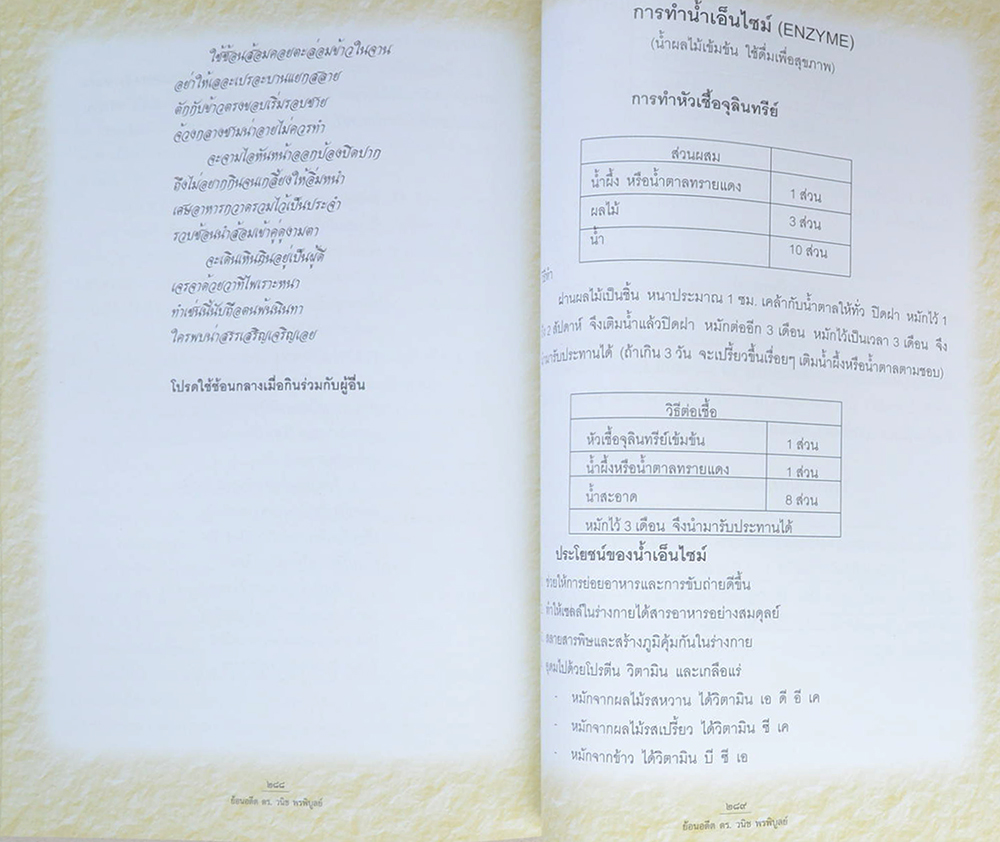 ใช้ช้อนส้อมคอยตะล่อมข้าวในจาน
อย่าให้เลอะเปรอะบานแยกสลาย
ตักกับข้าวตรงขอบเริ่มรอบชาย
จ้วงกลางชามน่าอายไม่ควรทำ
จะจามไอหันหน้าออกป้องปิดปาก
ถึงไม่อยากกินจนเกลี้ยงให้อิ่มหนำ
เศษอาหารกวาดรวมไว้เป็นประจำ
รวบช้อนนำส้อมเข้าคู่ดูงามตา
จะเดินเหินกินอยู่เป็นผู้ดี
เจรจาด้วยวาทีไพเราะหนา
ทำเช่นนี้นับถือตนพ้นนินทา
ใครพบน่าสรรเสริญเจริญเอย
โปรดใช้ช้อนกลางเมื่อกินร่วมกับผู้อื่น
๒๘๘
ย้อนอดีต ดร. วนิช พรพิบูลย์
การทำน้ำเอ็นไซม์ (ENZYME)
(น้ำผลไม้เข้มข้น ใช้ดื่มเพื่อสุขภาพ)
การทำหัวเชื้อจุลินทรีย์
ส่วนผสม
น้ำผึ้ง หรือน้ำตาลทรายแดง 1 ส่วน
ผลไม้ 3 ส่วน
น้ำ 10 ส่วน
ฝานผลไม้เป็นชิ้น หนาประมาณ 1 ซม. เคล้ากับน้ำตาลให้ทั่ว ปิดฝา หมักไว้ 1
2 สัปดาห์ จึงเติมน้ำแล้วปิดฝา หมักต่ออีก 3 เดือน หมักไว้เป็นเวลา 3 เดือน จึง
มารับประทานได้ (ถ้าเกิน 3 วัน จะเปรี้ยวขึ้นเรื่อยๆ เติมน้ำผึ้งหรือน้ำตาลตามชอบ)
วิธีต่อเชื้อ
หัวเชื้อจุลินทรีย์เข้มข้น 1 ส่วน
น้ำผึ้งหรือน้ำตาลทรายแดง 1 ส่วน
น้ำสะอาด 8 ส่วน
หมักไว้ 3 เดือน จึงนำมารับประทานได้
ประโยชน์ของน้ำเอ็นไซม์
ช่วยให้การย่อยอาหารและการขับถ่ายดีขึ้น
ทำให้เซลล์ในร่างกายได้สารอาหารอย่างสมดุลย์
สลายสารพิษและสร้างภูมิคุ้มกันในร่างกาย
อุดมไปด้วยโปรตีน วิตามิน และเกลือแร่
- หมักจากผลไม้รสหวาน ได้วิตามิน เอ ดี อี เค
- หมักจากผลไม้รสเปรี้ยว ได้วิตามิน ซี เค
- หมักจากข้าว ได้วิตามิน บี ซี เอ
๒๘๙
ย้อนอดีต ดร. วนิช พรพิบูลย์